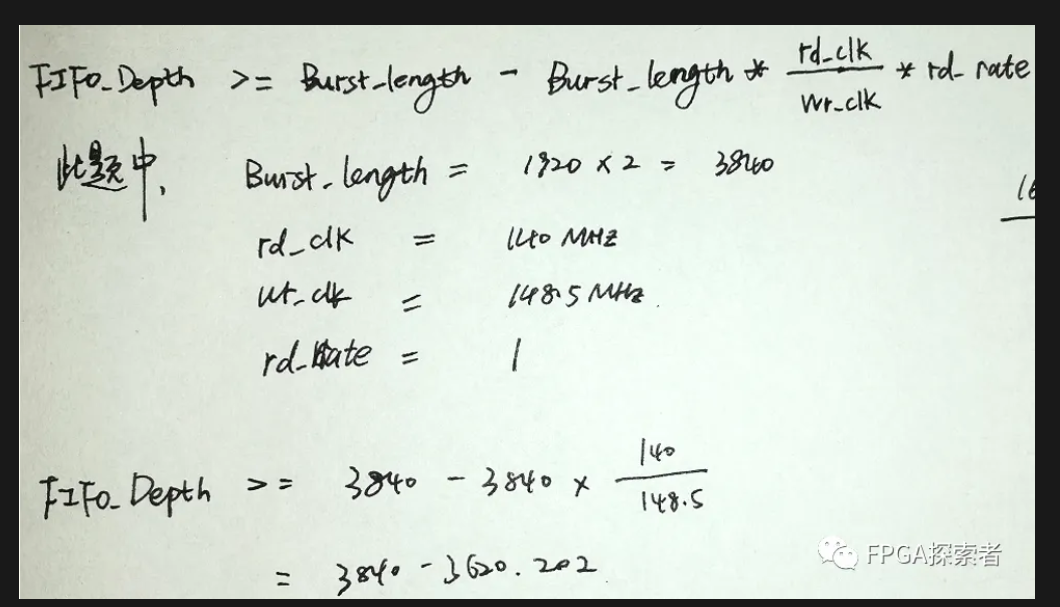 FIFO_Depth >= Burst_length - Burst_length * rd_clk / wr_clk * rd_rate
此题中, Burst_length = 1920 × 2 = 3840
rd_clk = 140 MHz
wr_clk = 148.5 MHz
rd_Rate = 1
FIFO_Depth >= 3840 - 3840 × 140 / 148.5
= 3840 - 3620.202
FPGA探索者